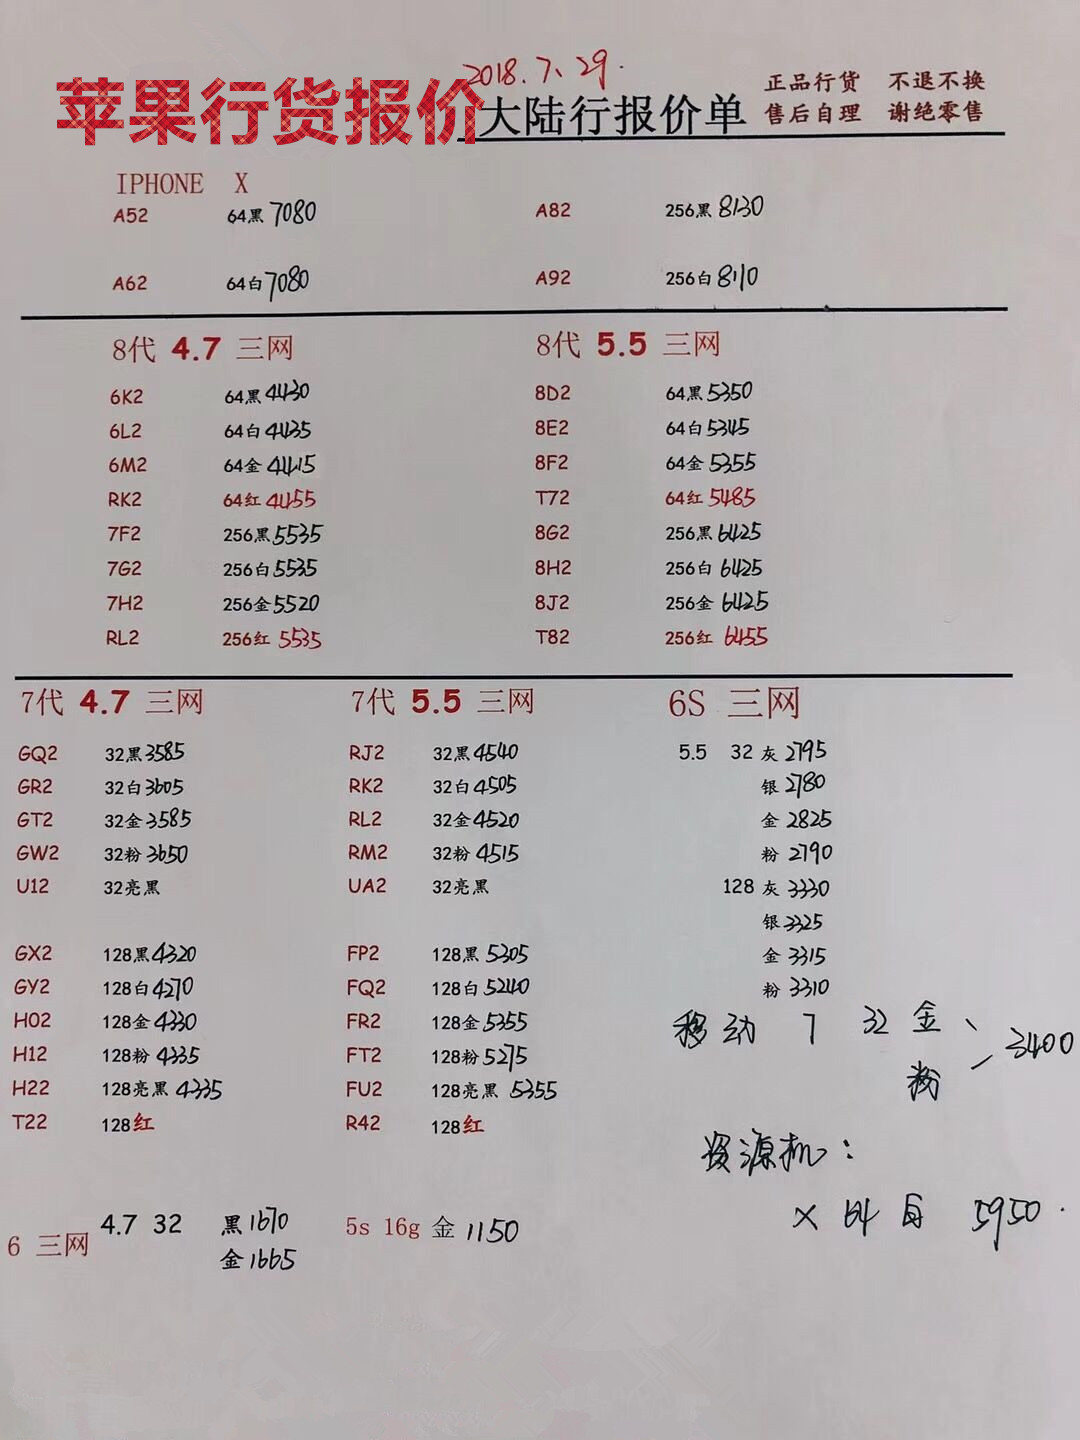 2018.7.29.
苹果行货报价
大陆行报价单
正品行货 不退不换
售后自理 谢绝零售
IPHONE X
A52 64黑 7080 A82 256黑 8130
A62 64白 7080 A92 256白 8110
8代 4.7 三网 8代 5.5 三网
6K2 64黑 4430 8D2 64黑 5350
6L2 64白 4435 8E2 64白 5345
6M2 64金 4415 8F2 64金 5355
RK2 64红 4455 T72 64红 5485
7F2 256黑 5535 8G2 256黑 6425
7G2 256白 5535 8H2 256白 6425
7H2 256金 5520 8J2 256金 6425
RL2 256红 5535 T82 256红 6455
7代 4.7 三网 7代 5.5 三网 6S 三网
GQ2 32黑 3585 RJ2 32黑 4540 5.5 32 灰 2795
GR2 32白 3605 RK2 32白 4505 银 2780
GT2 32金 3585 RL2 32金 4520 金 2825
GW2 32粉 3650 RM2 32粉 4515 粉 2790
U12 32亮黑 UA2 32亮黑 128 灰 3330
银 3325
GX2 128黑 4320 FP2 128黑 5305 金 3315
GY2 128白 4270 FQ2 128白 5240 粉 3310
H02 128金 4330 FR2 128金 5355 移动 7 32 金、
3400
H12 128粉 4335 FT2 128粉 5275
H22 128亮黑 4335 FU2 128亮黑 5355 粉
T22 128红 R42 128红
资源机：
X 64 白 5950.
6 三网 4.7 32 黑 1670 5s 16g 金 1150
金 1665